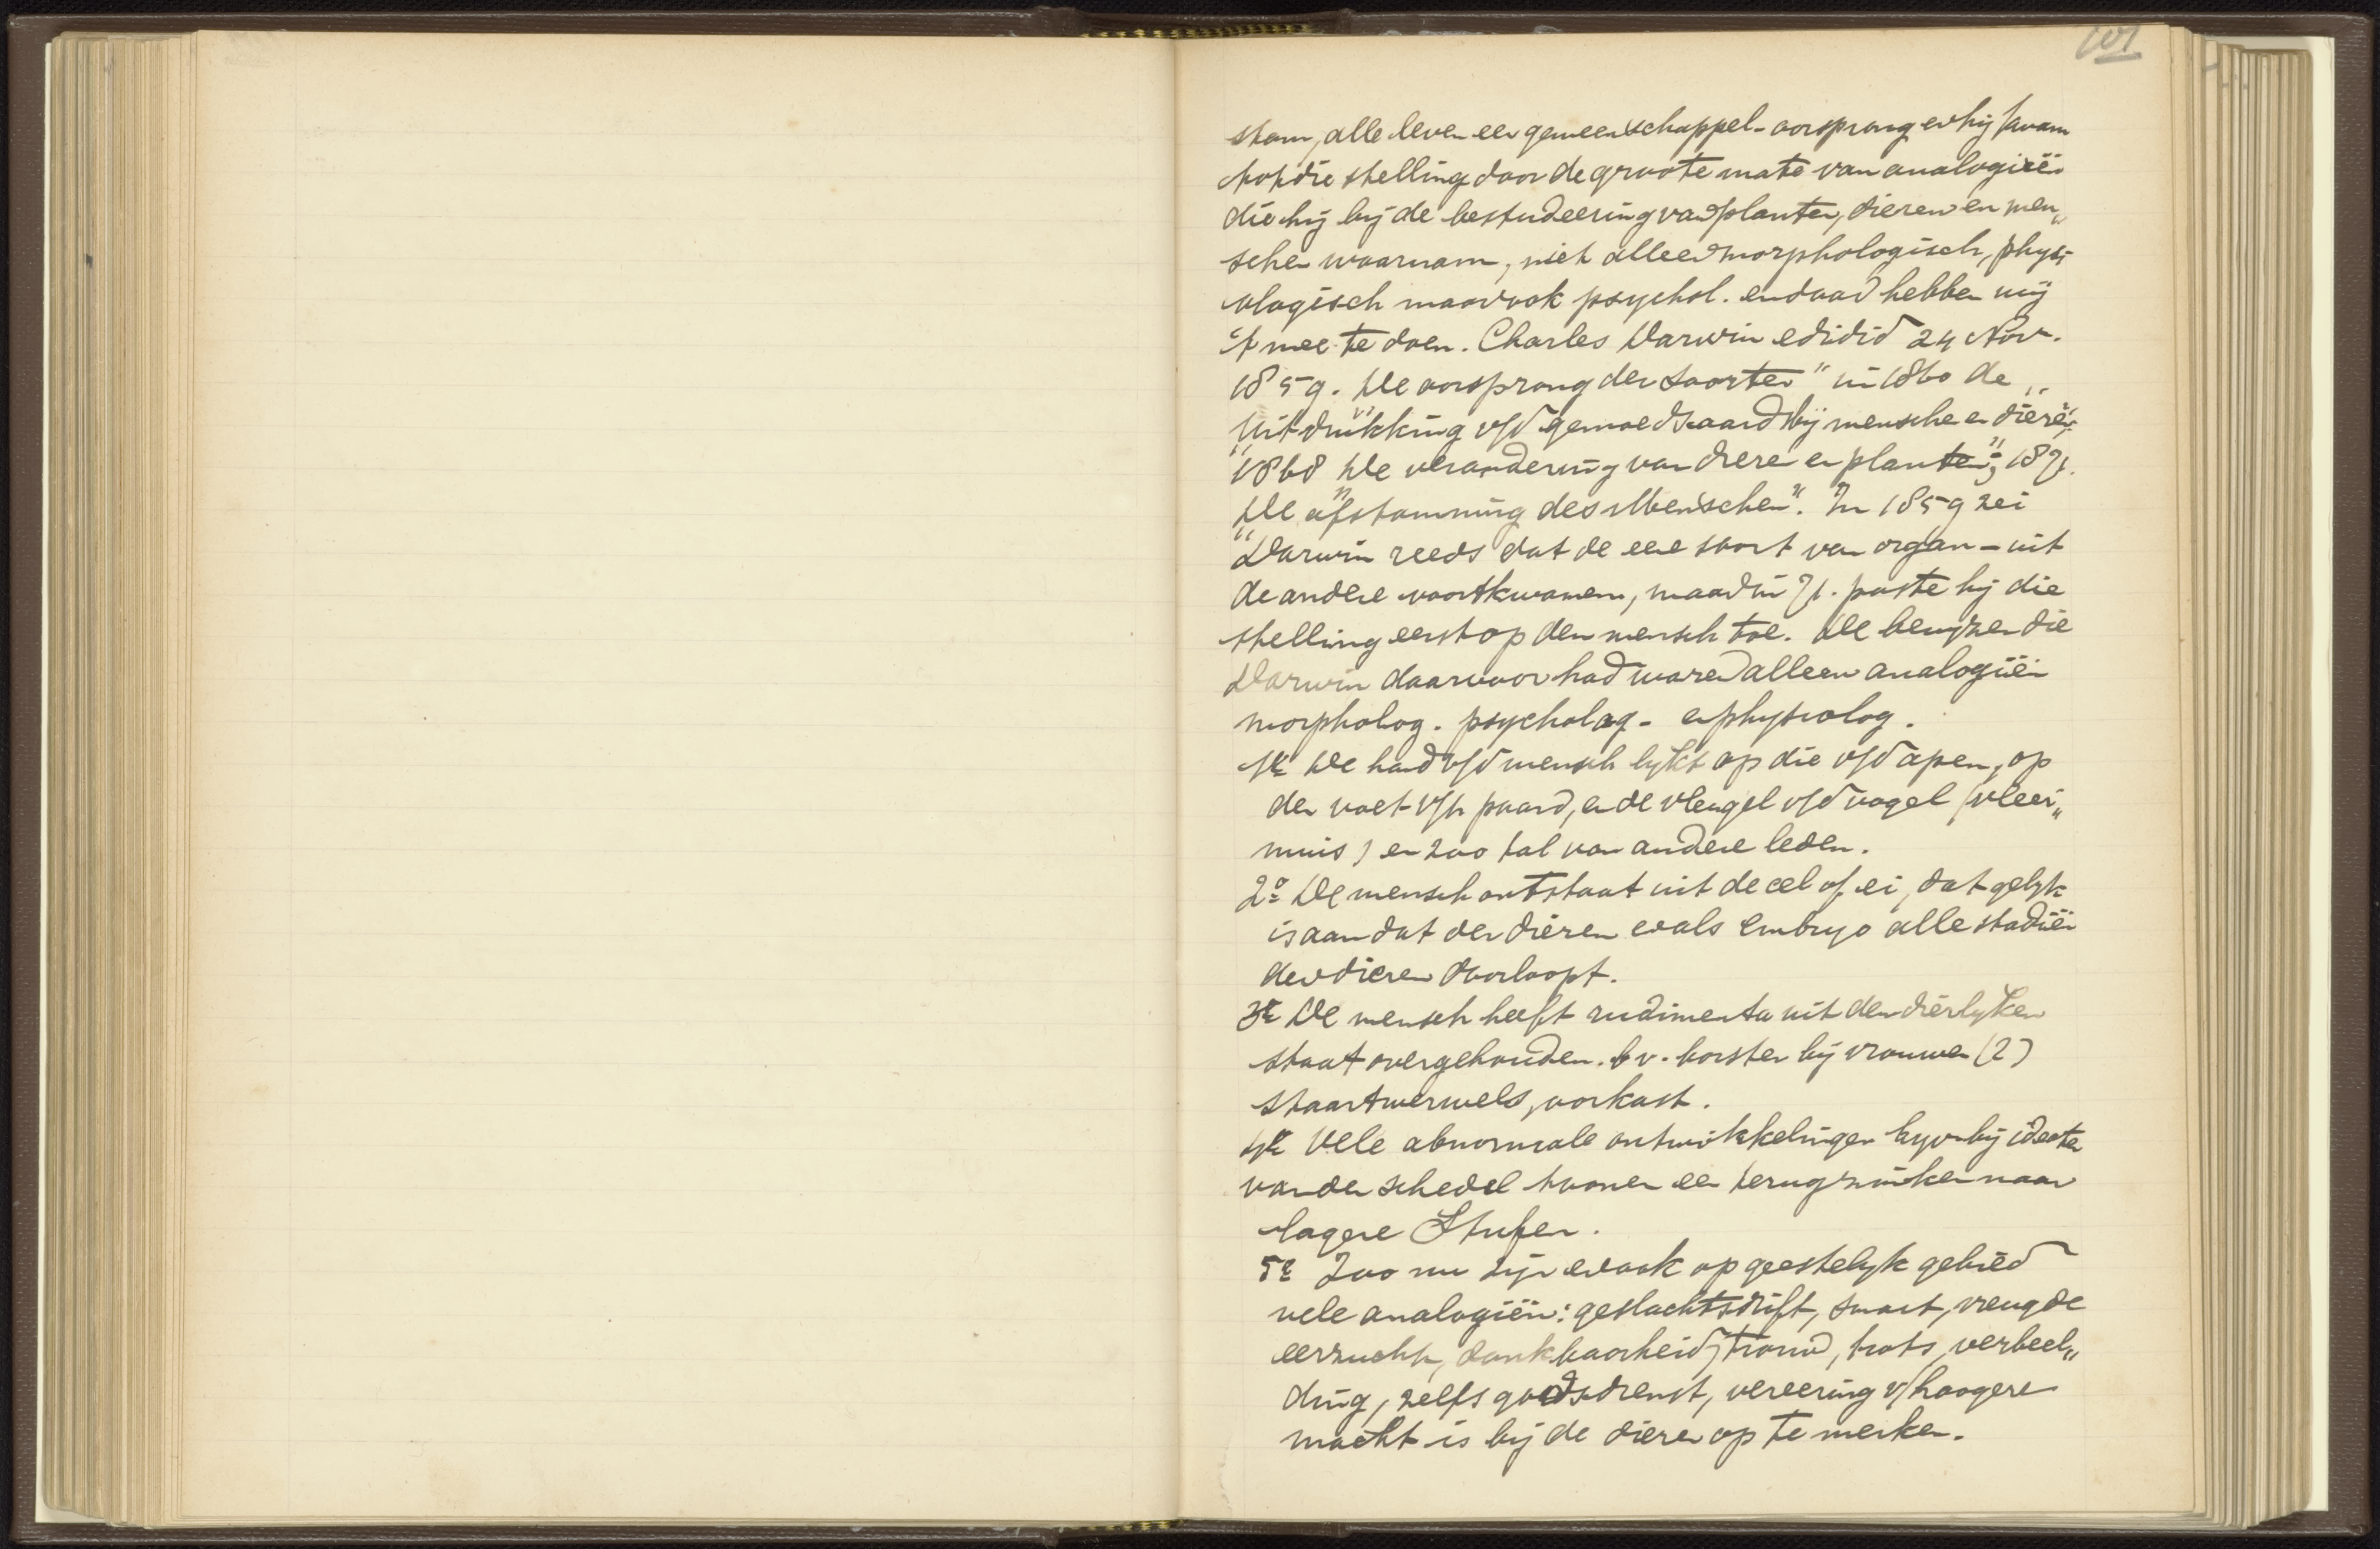 101
stam, alle leven een gemeenschappel- oorsprong en hij kwam
tot die stelling door de groote mate van analogieën
die hij bij de bestudeering van planten, dieren en men„
schen waarnam, niet alleen morphologisch, physi
ologisch maar ook psychol. en daar hebben wij
't mee te doen. Charles Darwin edidid 24 Nov.
1859. De oorsprong der soorten" in 1860 de „
Uitdrukking v/d gemoedsaard bij menschen en dieren"
1868 De verandering van dieren en planten"; 1871.
De afstamming des Menschen". In 1859 zei
Darwin reeds dat de eene soort van organ- uit
de andere voortkwamen, maar in 71. paste hij die
stelling eerst op den mensch toe. De bewijzen die
Darwin daarvoor had waren alleen analogiën
morpholog. psycholog- en physiolog.
1e De hand v/d mensch lykt op die v/d apen, op
den voet v/h paard, en de vleugel v/d vogel (vleer„
muis) en zoo tal van andere leden.
2o De mensch ontstaat uit de cel of ei, dat gelyk
is aan dat der dieren en als embryo alle stadiën
der dieren doorloopt.
3e De mensch heeft rudimenta uit den dierlyken
staat overgehouden. bv. borsten bij vrouwen (2)
staartwervels, vorkast.
4e Vele abnormale ontwikkelingen byv. bij idioten
van den schedel toonen een terugzinken naar
lagere Stufen.
5e Zoo nu zijn er ook op geestelyk gebied
vele analogiën: geslachtsdrift, smart, vreugde
eerzucht, dankbaarheid, trouw, trots, verbeel„
ding, zelfs godsdienst, vereering v/hoogere
macht is bij de dieren op te merken.